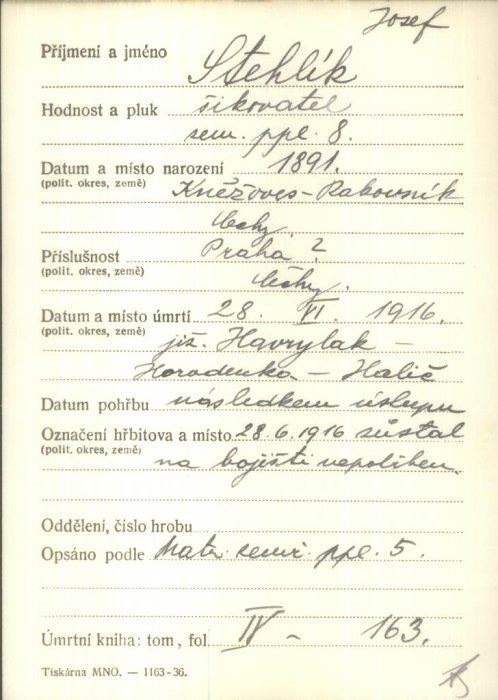 Josef
Příjmení a jméno Stehlík
Hodnost a pluk šikovatel
zem. ppl. 8.
Datum a místo narození 1891.
(polit. okres, země) Kněžoves - Rakovník
Čechy.
Příslušnost Praha ?
(polit. okres, země) Čechy.
Datum a místo úmrtí 28. VI. 1916.
(polit. okres, země) již. Havrylak -
Horodenka - Halič
Datum pohřbu následkem ústupu
Označení hřbitova a místo 28.6.1916 zůstal
(polit. okres, země) na bojišti nepohřben.
Oddělení, číslo hrobu
Opsáno podle Matr. zeměř. ppl. 5.
Úmrtní kniha: tom, fol. IV - 163.
Tiskárna MNO. — 1163-36.